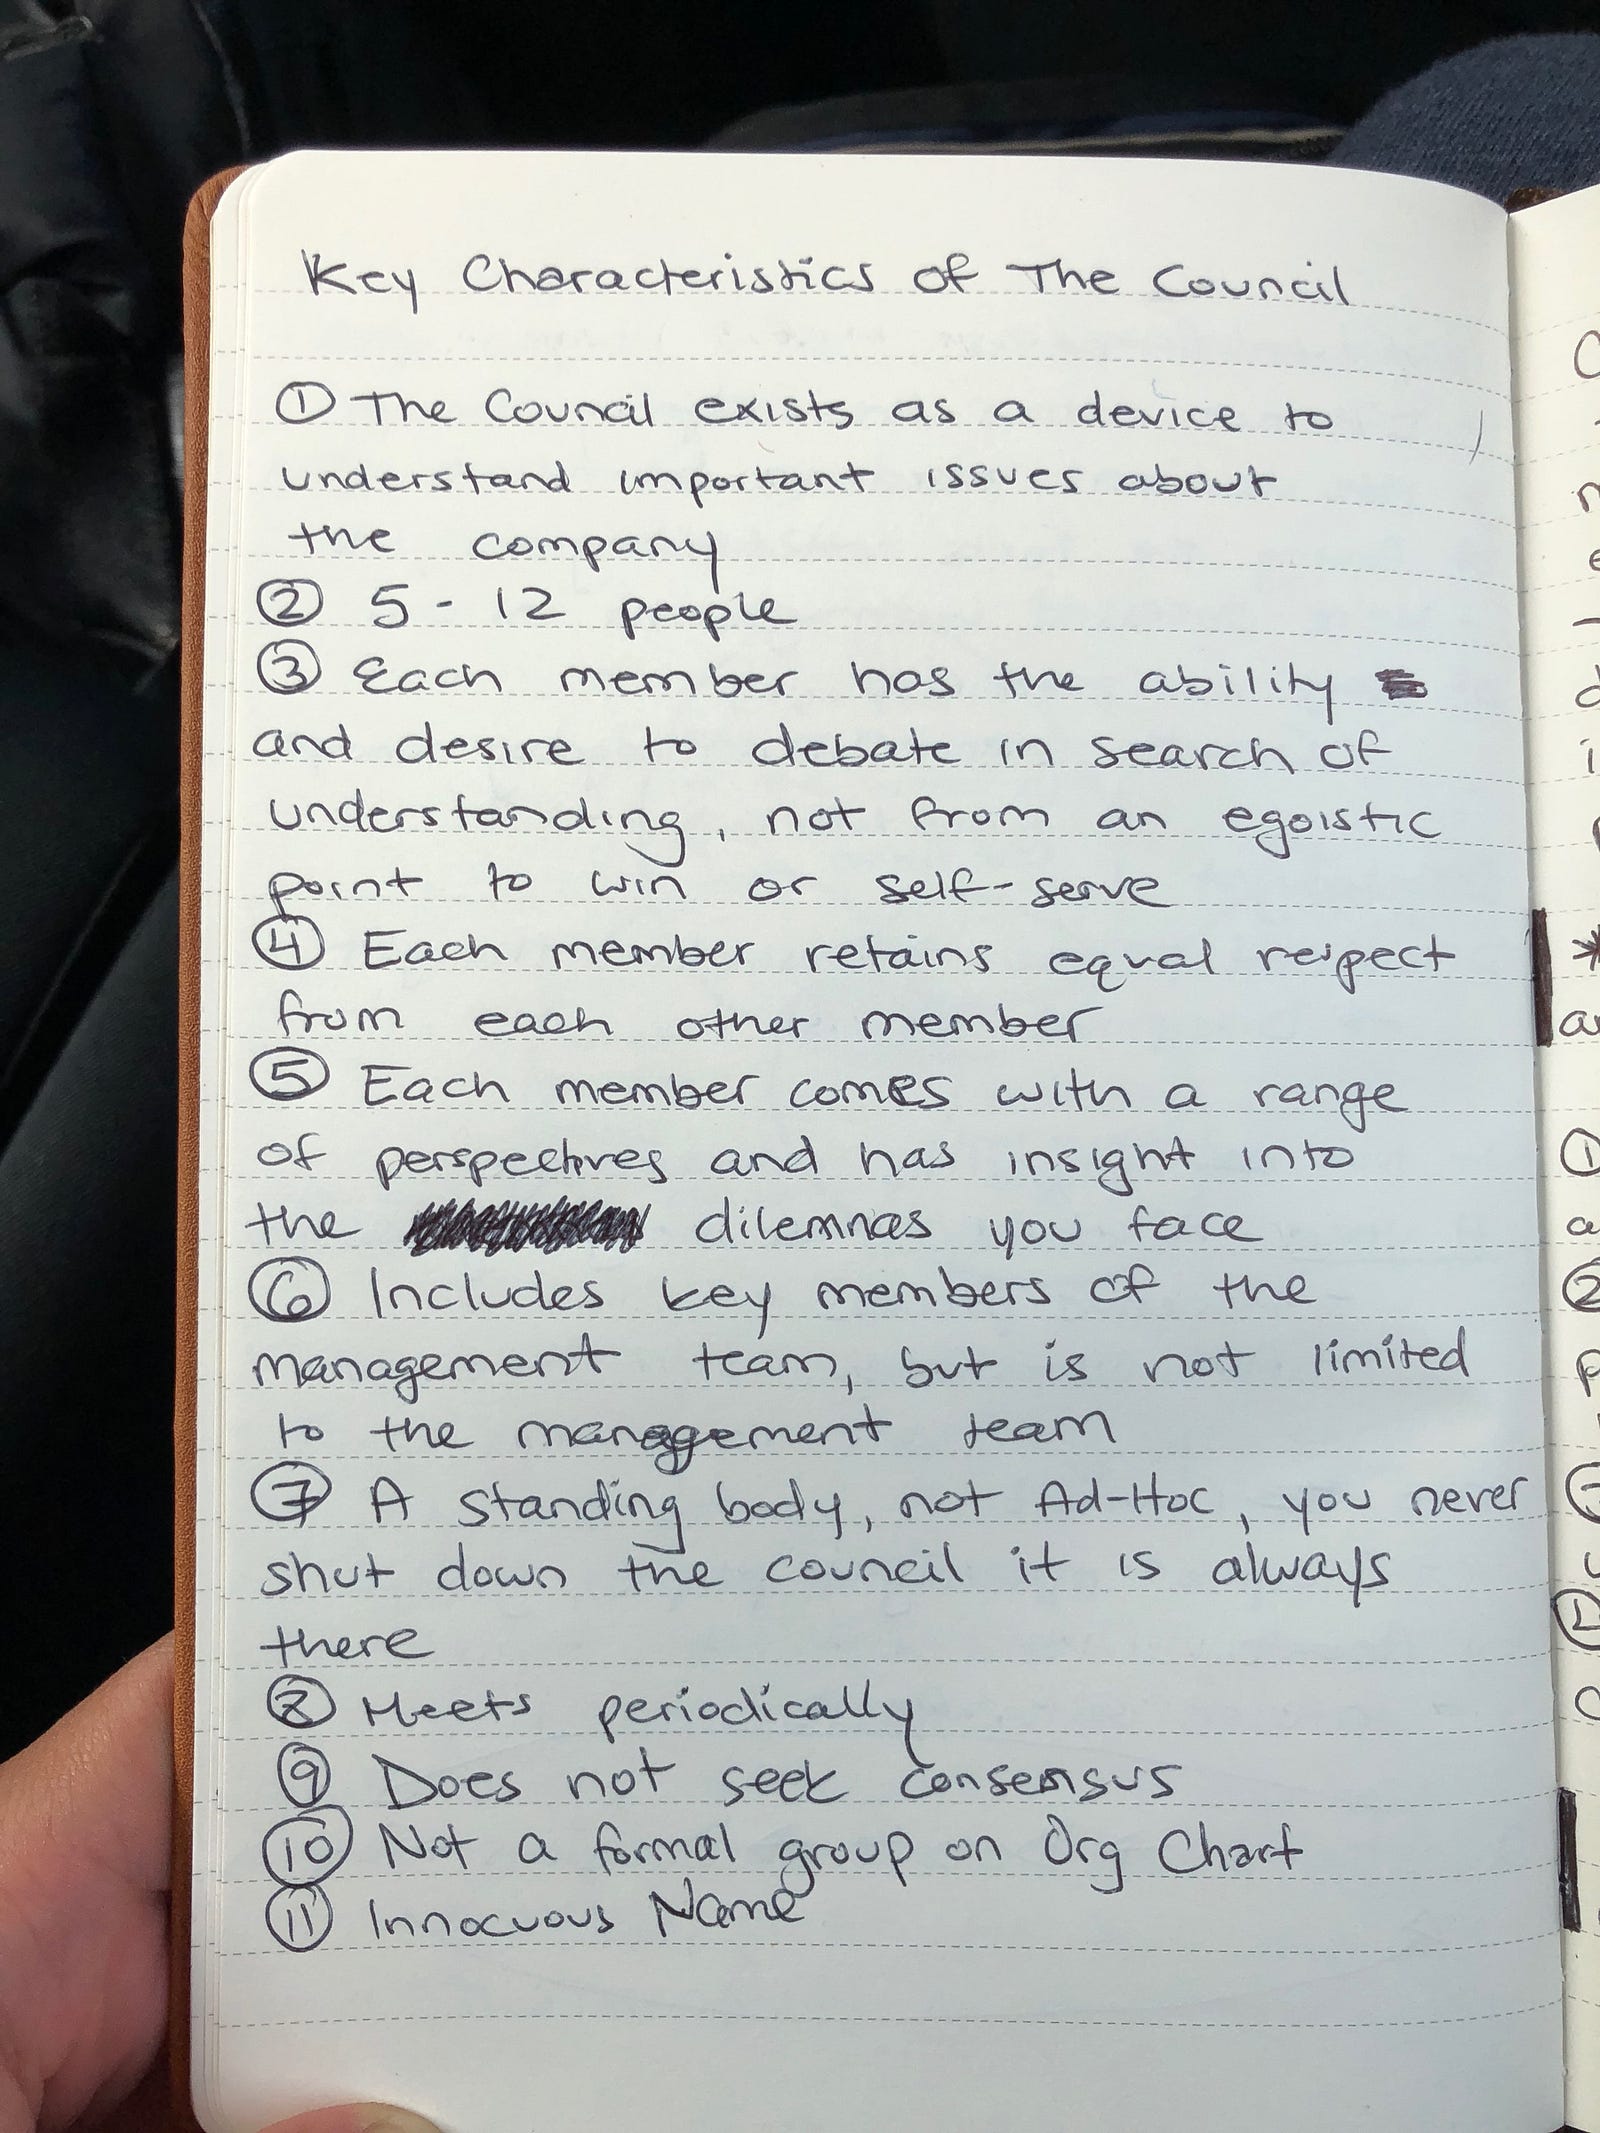 Key Characteristics of The Council
① The Council exists as a device to
understand important issues about
the company
② 5 - 12 people
③ Each member has the ability
and desire to debate in search of
understanding, not from an egoistic
point to win or self-serve
④ Each member retains equal respect
from each other member
⑤ Each member comes with a range
of perspectives and has insight into
the dilemnas you face
⑥ Includes key members of the
management team, but is not limited
to the management team
⑦ A standing body, not Ad-Hoc, you never
shut down the council it is always
there
⑧ Meets periodically
⑨ Does not seek consensus
⑩ Not a formal group on Org Chart
⑪ Innocuous Name